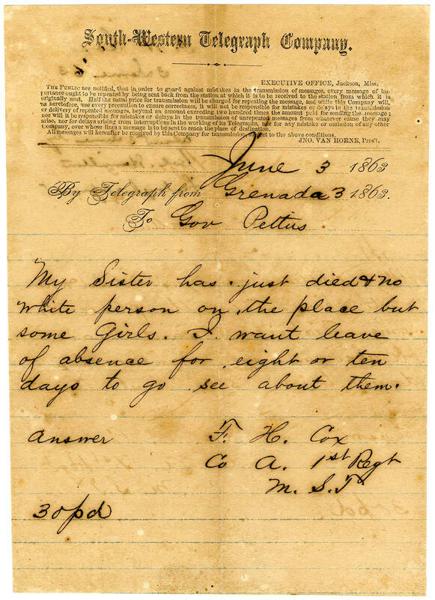 South-Western Telegraph Company.
EXECUTIVE OFFICE, Jackson, Miss.
THE PUBLIC are notified, that in order to guard against mistakes in the transmission of messages, every message of importance ought to be repeated by being sent back from the station at which it is to be received to the station from which it is
originally sent. Half the usual price for transmission will be charged for repeating the message, and while this Company will,
as heretofore, use every precaution to ensure correctness, it will not be responsible for mistakes or delays in the transmission
or delivery of repeated messages beyond an amount exceeding five hundred times the amount paid for sending the message;
nor will it be responsible for mistakes or delays in the transmission of unrepeated messages from whatever cause they may
arise, nor for delays arising from interruptions in the working of its Telegraph, nor for any mistake or omission of any other
Company, over whose lines a message is to be sent to reach the place of destination.
All messages will hereafter be received by this Company for transmission subject to the above conditions.
JNO. VAN HORNE, PRES'T.
June 3 1863
By Telegraph from Grenada 3 1863.
To Gov Pettus
My Sister has just died & no
white person on the place but
some Girls. I want leave
of absence for eight or ten
days to go see about them.
Answer F. H. Cox
Co A. 1st Regt
M. S. T
30pd